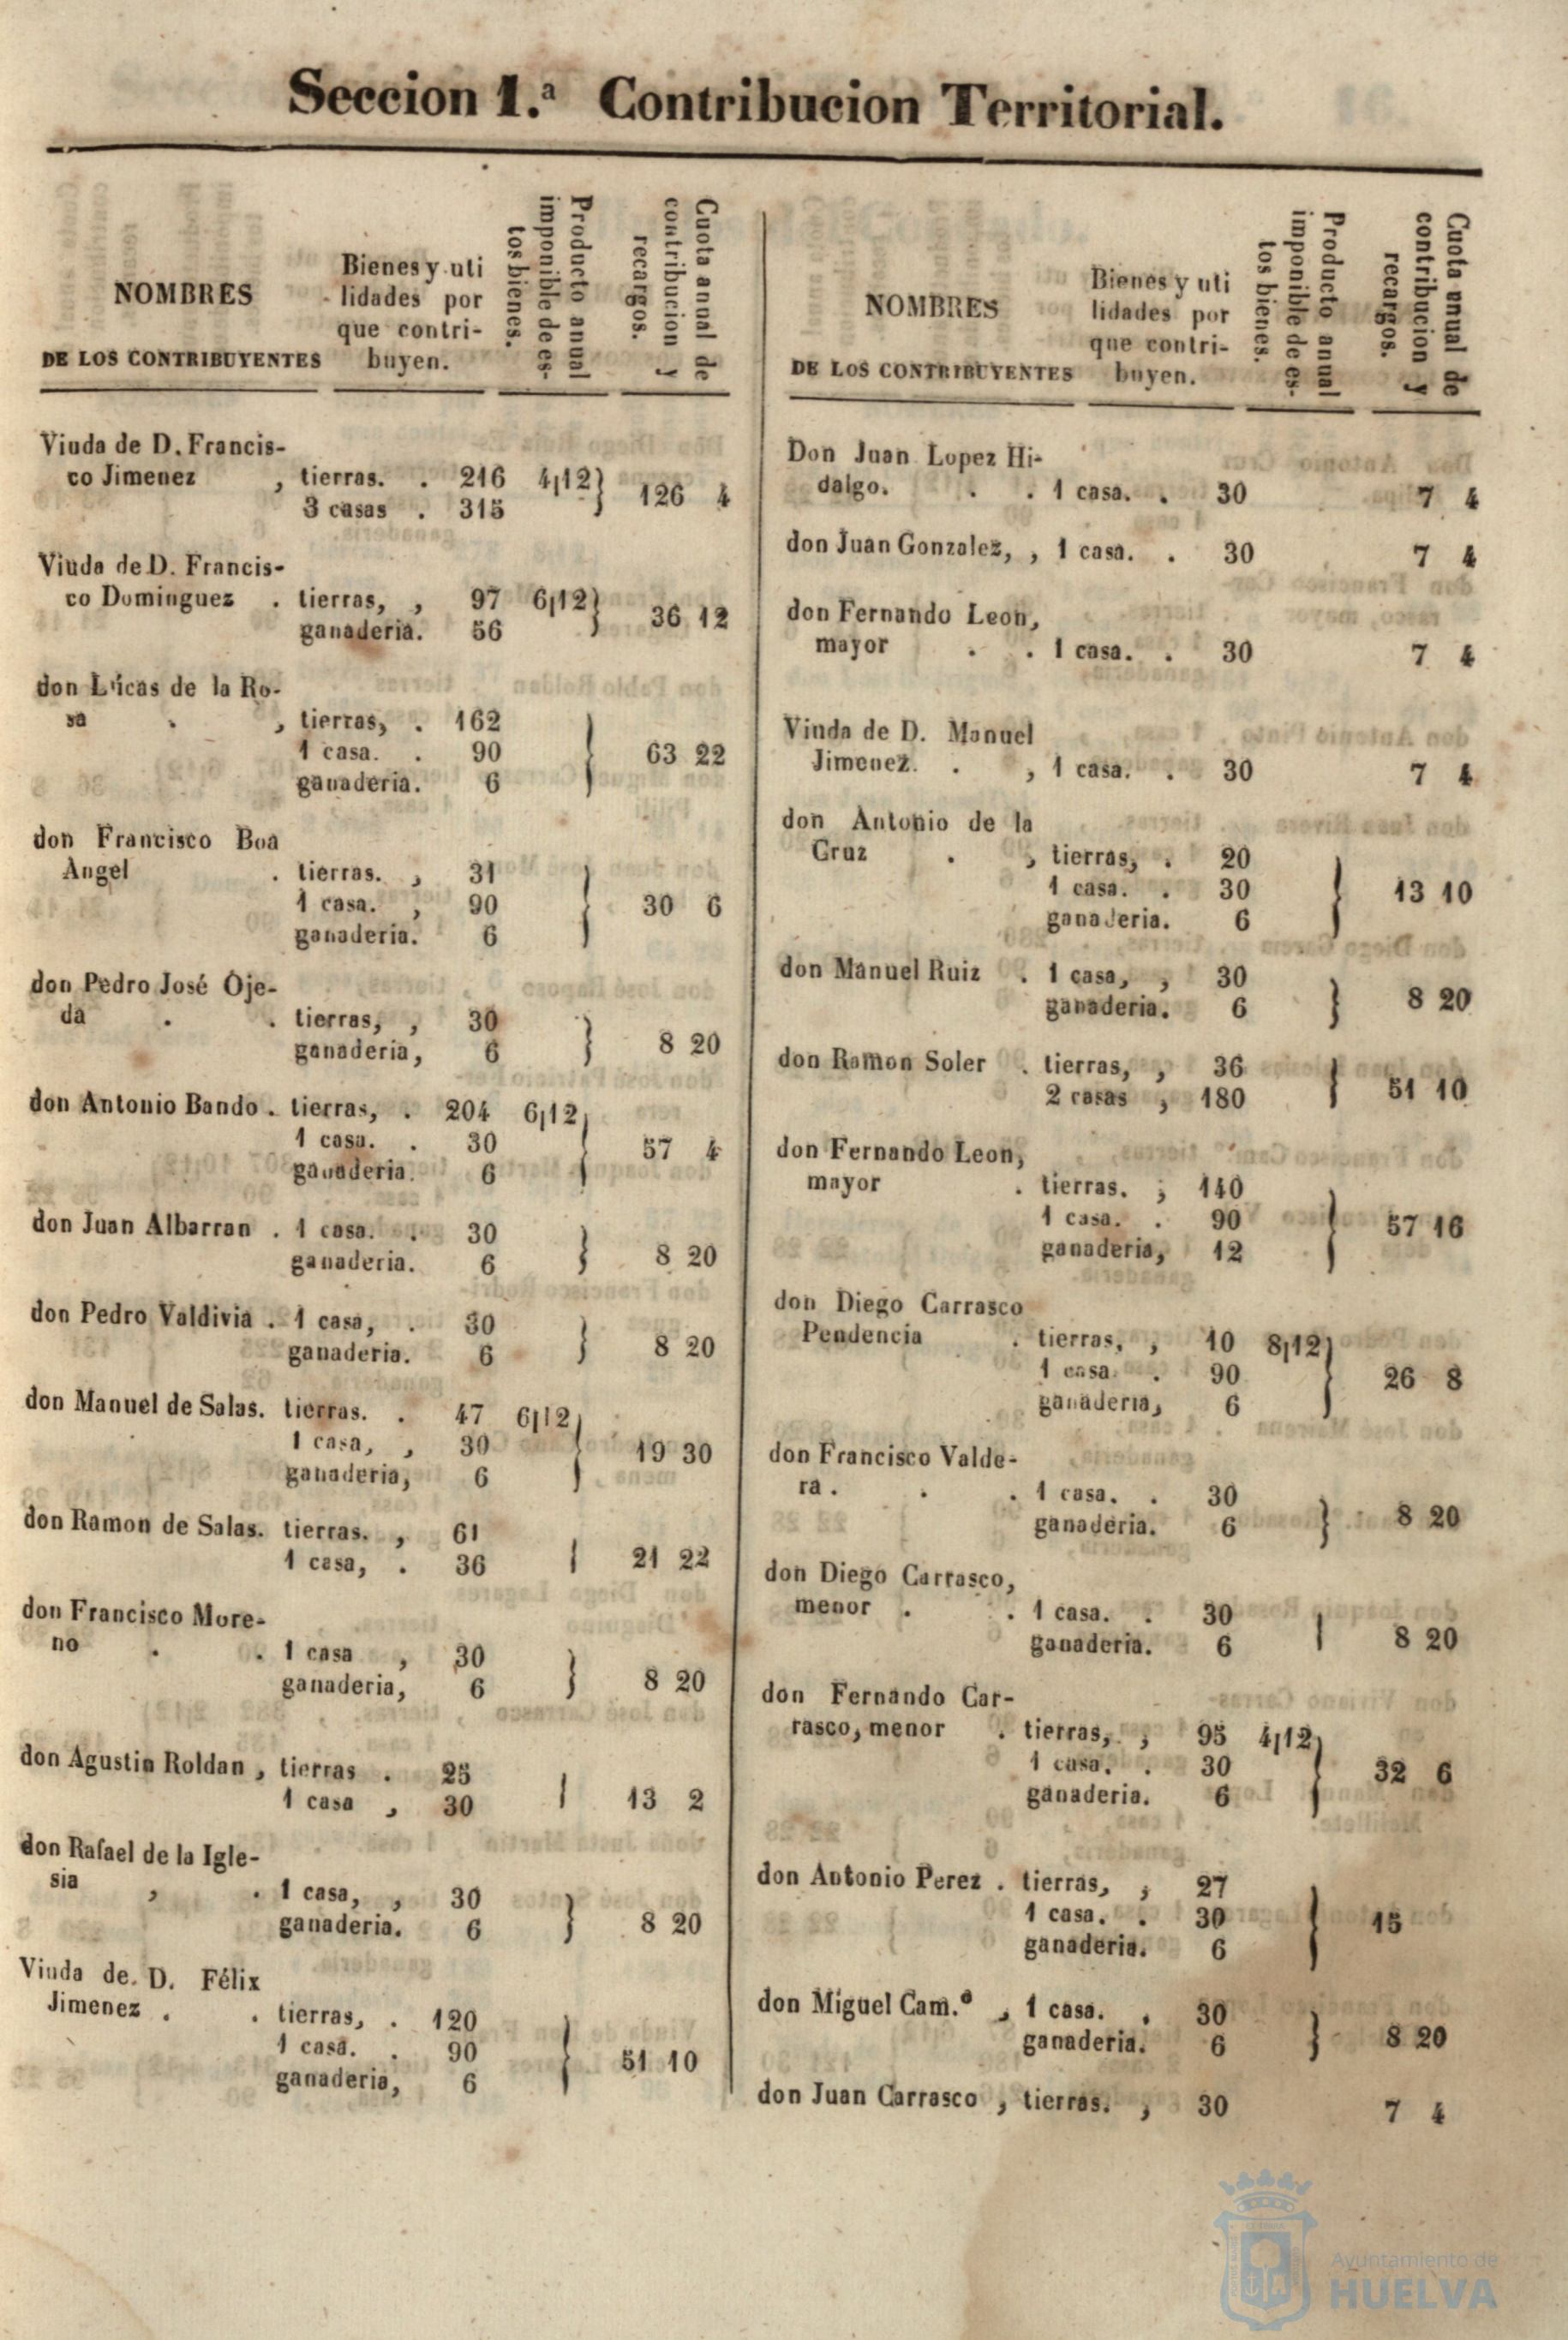 Seccion 1.ª Contribucion Territorial.
NOMBRES
DE LOS CONTRIBUYENTES
Bienes y uti
lidades por
que contri-
buyen.
Producto anual
imponible de es-
tos bienes.
Cuota anual de
contribucion y
recargos.
Viuda de D. Francis-
co Jimenez , tierras. . 216 4|12 } 126 4
3 casas . 315
Viuda de D. Francis-
co Dominguez . tierras, , 97 6|12 } 36 12
ganaderia. 56
don Lucas de la Ro-
sa . , tierras, . 162
1 casa. . 90 } 63 22
ganaderia. 6
don Francisco Boa
Angel . tierras. , 31
1 casa. , 90 } 30 6
ganaderia. 6
don Pedro José Oje-
da . . tierras, , 30
ganaderia, 6 } 8 20
don Antonio Bando . tierras, . 204 6|12
1 casa. . 30 } 57 4
ganaderia. 6
don Juan Albarran . 1 casa. . 30
ganaderia. 6 } 8 20
don Pedro Valdivia . 1 casa, . 30
ganaderia. 6 } 8 20
don Manuel de Salas. tierras. . 47 6|12
1 casa, , 30 } 19 30
ganaderia, 6
don Ramon de Salas. tierras. , 61
1 casa, . 36 | 21 22
don Francisco More-
no . . 1 casa , 30
ganaderia, 6 } 8 20
don Agustin Roldan , tierras . 25
1 casa , 30 | 13 2
don Rafael de la Igle-
sia , . 1 casa, , 30
ganaderia. 6 } 8 20
Viuda de. D. Félix
Jimenez . . tierras, . 120
1 casa. . 90 } 51 10
ganaderia, 6
NOMBRES
DE LOS CONTRIBUYENTES
Bienes y uti
lidades por
que contri-
buyen.
Producto anual
imponible de es-
tos bienes.
Cuota anual de
contribucion y
recargos.
Don Juan Lopez Hi-
dalgo. . . 1 casa. . 30 7 4
don Juan Gonzalez, , 1 casa. . 30 7 4
don Fernando Leon,
mayor . . 1 casa. . 30 7 4
Viuda de D. Manuel
Jimenez. . , 1 casa. . 30 7 4
don Antonio de la
Cruz . , tierras, . 20
1 casa. . 30 } 13 10
ganaderia. 6
don Manuel Ruiz . 1 casa, , 30
ganaderia. 6 } 8 20
don Ramon Soler . tierras, , 36
2 casas , 180 } 51 10
don Fernando Leon,
mayor . tierras. ; 140
1 casa. . 90 } 57 16
ganaderia, 12
don Diego Carrasco
Pendencia . tierras, , 10 8|12
1 casa. . 90 } 26 8
ganaderia, 6
don Francisco Valde-
ra . . . 1 casa. . 30
ganaderia. 6 } 8 20
don Diego Carrasco,
menor . . 1 casa. . 30
ganaderia. 6 | 8 20
don Fernando Car-
rasco, menor . tierras, ; 95 4|12
1 casa. . 30 } 32 6
ganaderia. 6
don Antonio Perez . tierras, ; 27
1 casa. . 30 } 15
ganaderia. 6
don Miguel Cam.º , 1 casa. , 30
ganaderia. 6 } 8 20
don Juan Carrasco , tierras. , 30 7 4
Ayuntamiento de
HUELVA